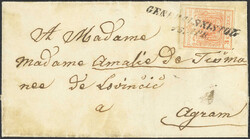 A Madame
madame Amalie de Tisma
nee de Lovinčić
a
Agram